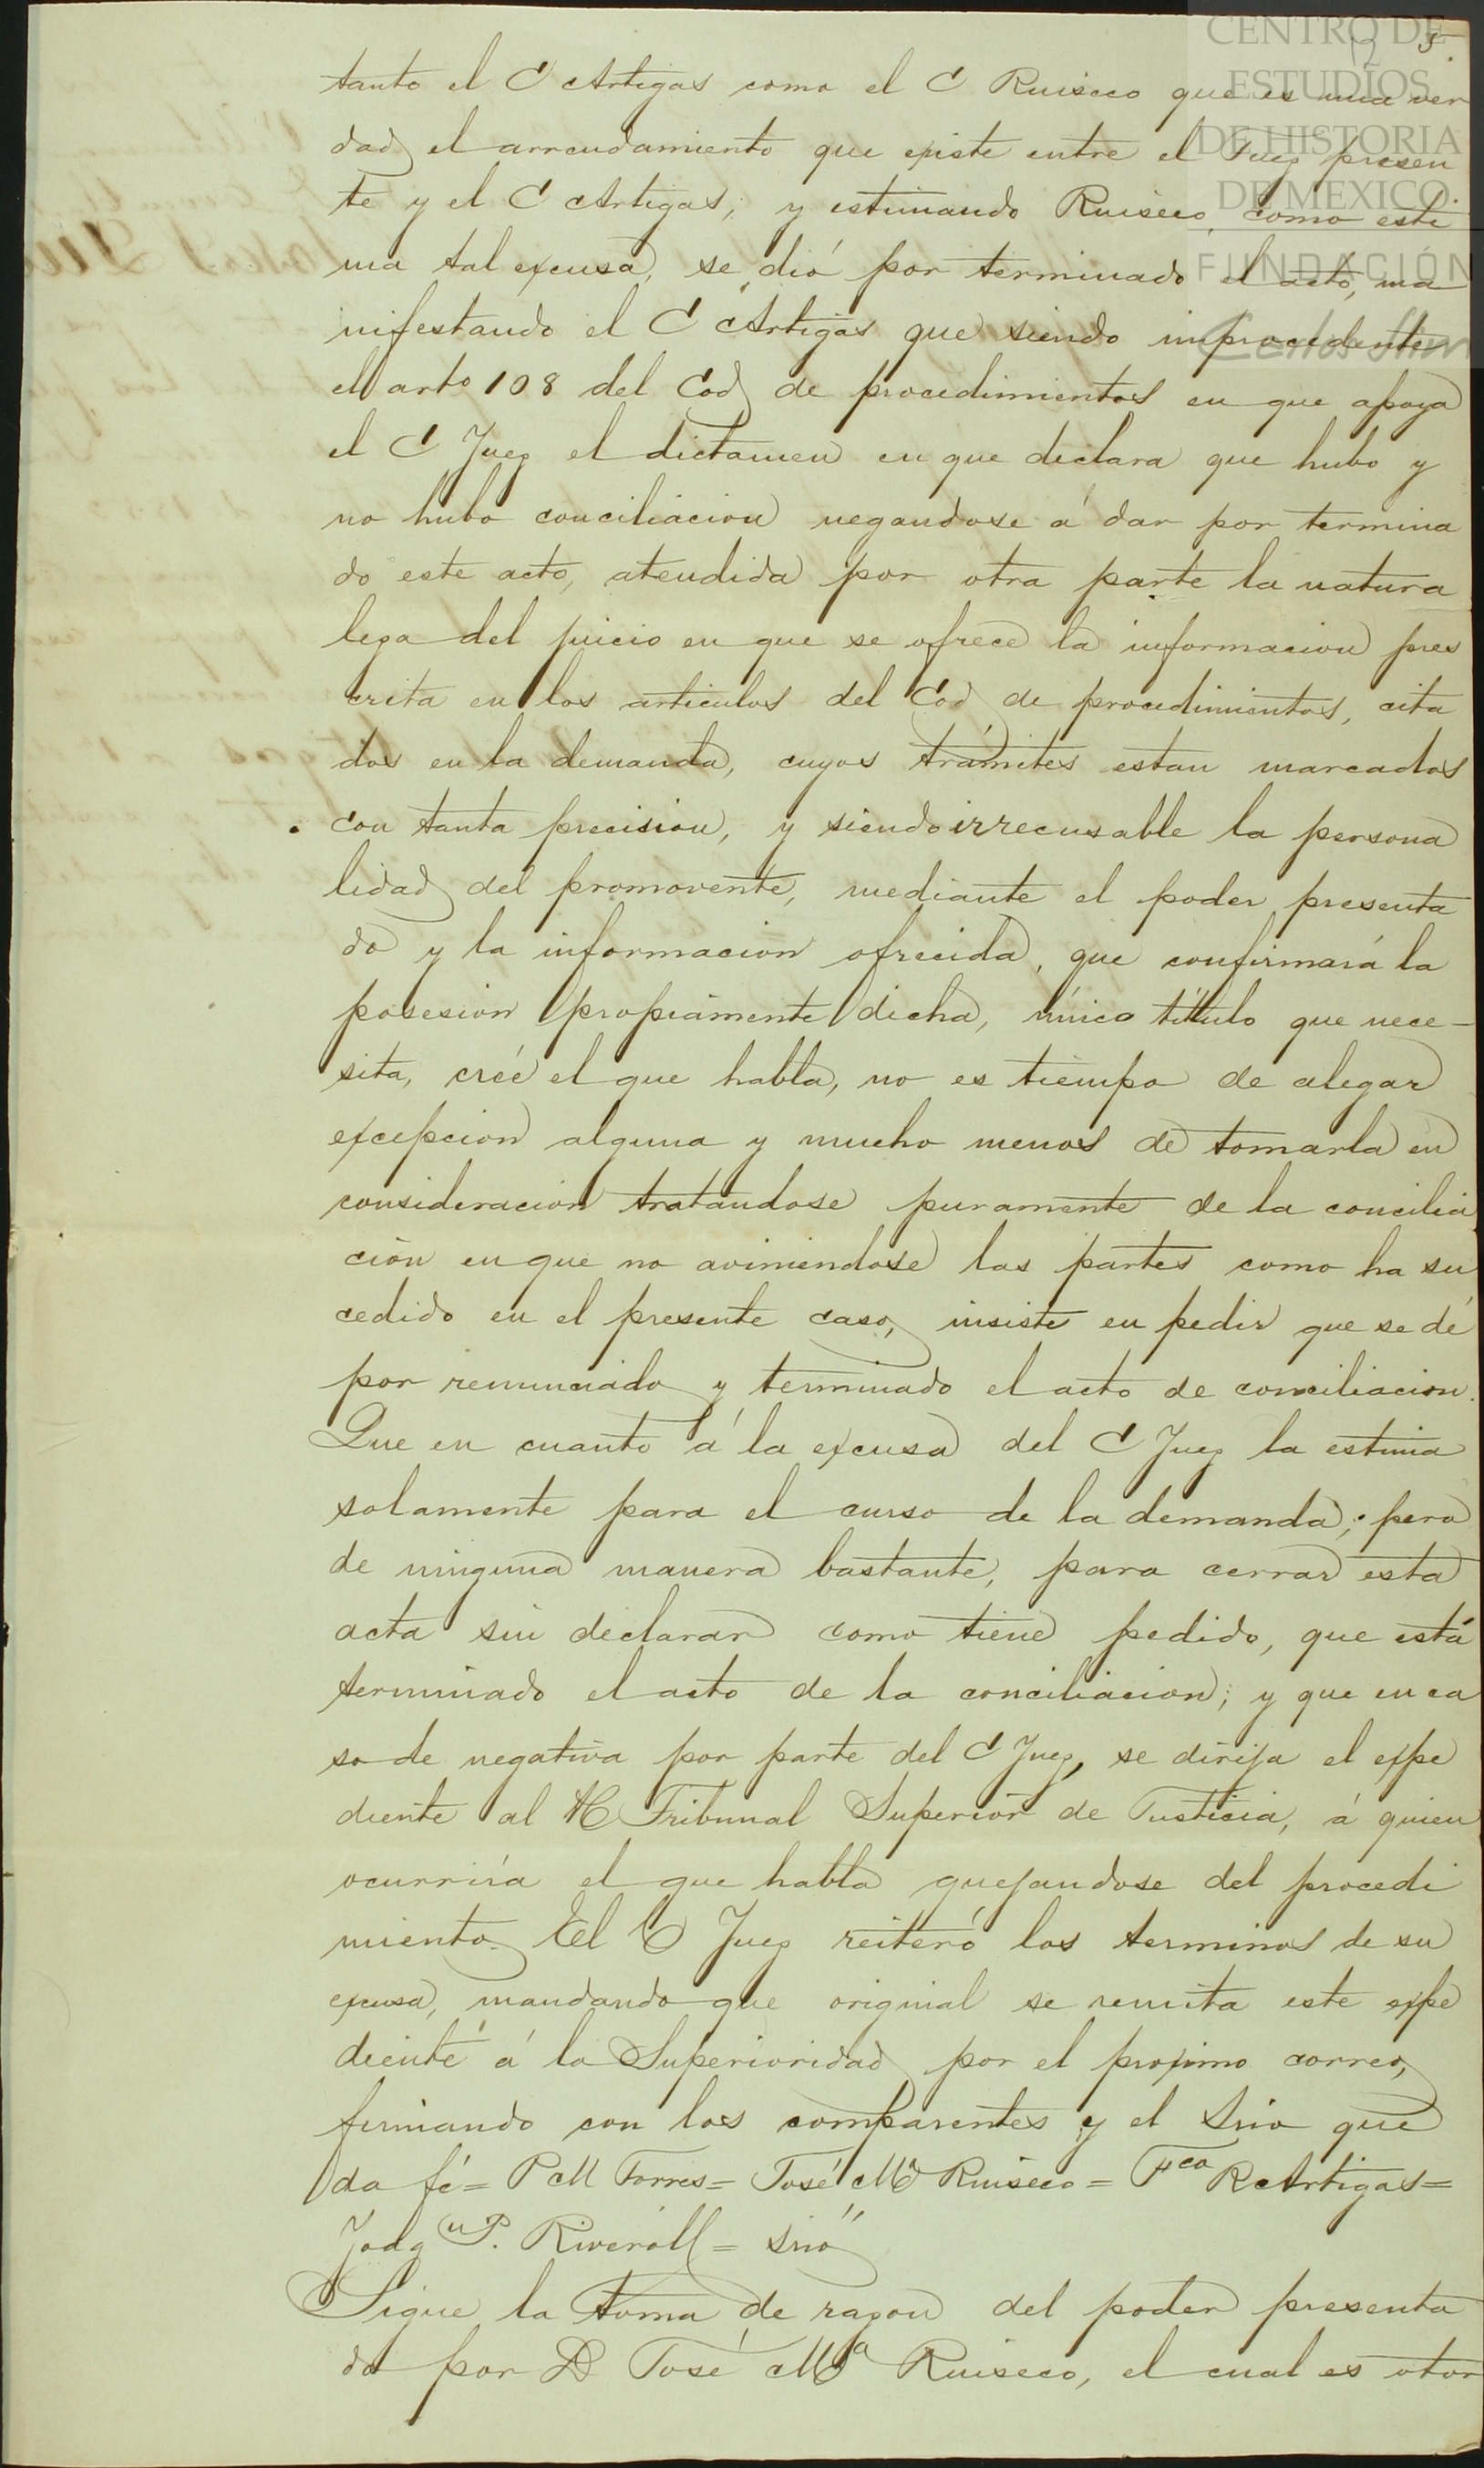 5
12
CENTRO DE
ESTUDIOS
DE HISTORIA
DE MEXICO.
FUNDACIÓN
Carlos Slim
tanto el C Artigas como el C Ruiseco que es una ver
dad el arrendamiento que existe entre el Juez presen
te y el C Artigas; y estimando Ruiseco, como esti
ma tal excusa, se dió por terminado el acto, ma
nifestando el C Artigas que siendo improcedente
el arto 108 del Cod de procedimientos en que apoya
el C Juez el dictamen en que declara que hubo y
no hubo conciliacion negandose á dar por termina
do este acto, atendida por otra parte la natura
leza del juicio en que se ofrece la informacion pres
crita en los articulos del Cod de procedimientos, cita
dos en la demanda, cuyos trámites estan marcados
con tanta precision, y siendo irrecusable la persona
lidad del promovente, mediante el poder presenta
do y la informacion ofrecida, que confirmará la
posesion propiamente dicha, único título que nece-
sita, créé el que habla, no es tiempo de alegar
excepcion alguna y mucho menos de tomarla en
consideracion tratandose puramente de la concilia
ción en que no aviniendose las partes como ha su
cedido en el presente caso, insiste en pedir que se dé
por renunciado y terminado el acto de conciliacion.
Que en cuanto á la excusa del C Juez la estima
solamente para el curso de la demanda; pero
de ninguna manera bastante, para cerrar esta
acta sin declarar como tiene pedido, que está
terminado el acto de la conciliacion; y que en ca
so de negativa por parte del C Juez, se dirija el expe
diente al H Tribunal Superior de Justicia, á quien
ocurrirá el que habla quejandose del procedi
miento. El C Juez reiteró los terminos de su
excusa, mandando que original se remita este expe
diente á la Superioridad por el proximo correo,
firmando con los comparentes y el Srio que
da fé = P M Torres = José Ma Ruiseco = Fco R Artigas =
Joaqn P. Riveroll = srio
Sigue la toma de razon del poder presenta
do por D José Ma Ruiseco, el cual es otor